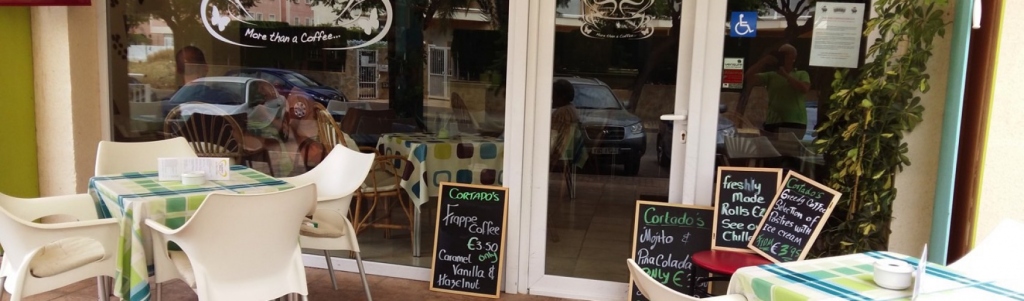 More than a Coffee...
More than a Coffee...
CORTADO'S
Frappe
Coffee
€3.50
only
Caramel
Vanilla &
Hazelnut
CORTADO'S
Mojito &
Piña Colada
Only €
freshly
Made
Rolls €2
See o
Chill
CORTADO'S
Greedy Coffee
Selection of
Pastres with
Ice cream
From €3.95